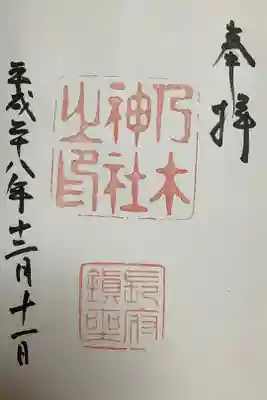 奉拝
乃木
神社
之印
長府
鎮坐
平成二十八年十二月十一日